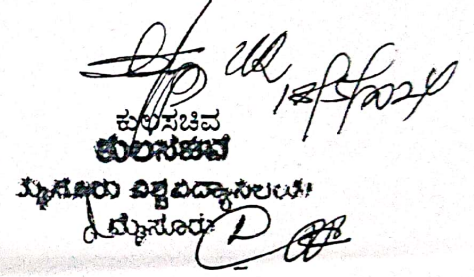 18/5/2024
ಕುಲಸಚಿವ
ಕುಲಸಚಿವೆ
ಮೈಸೂರು ವಿಶ್ವವಿದ್ಯಾನಿಲಯ
ಮೈಸೂರು